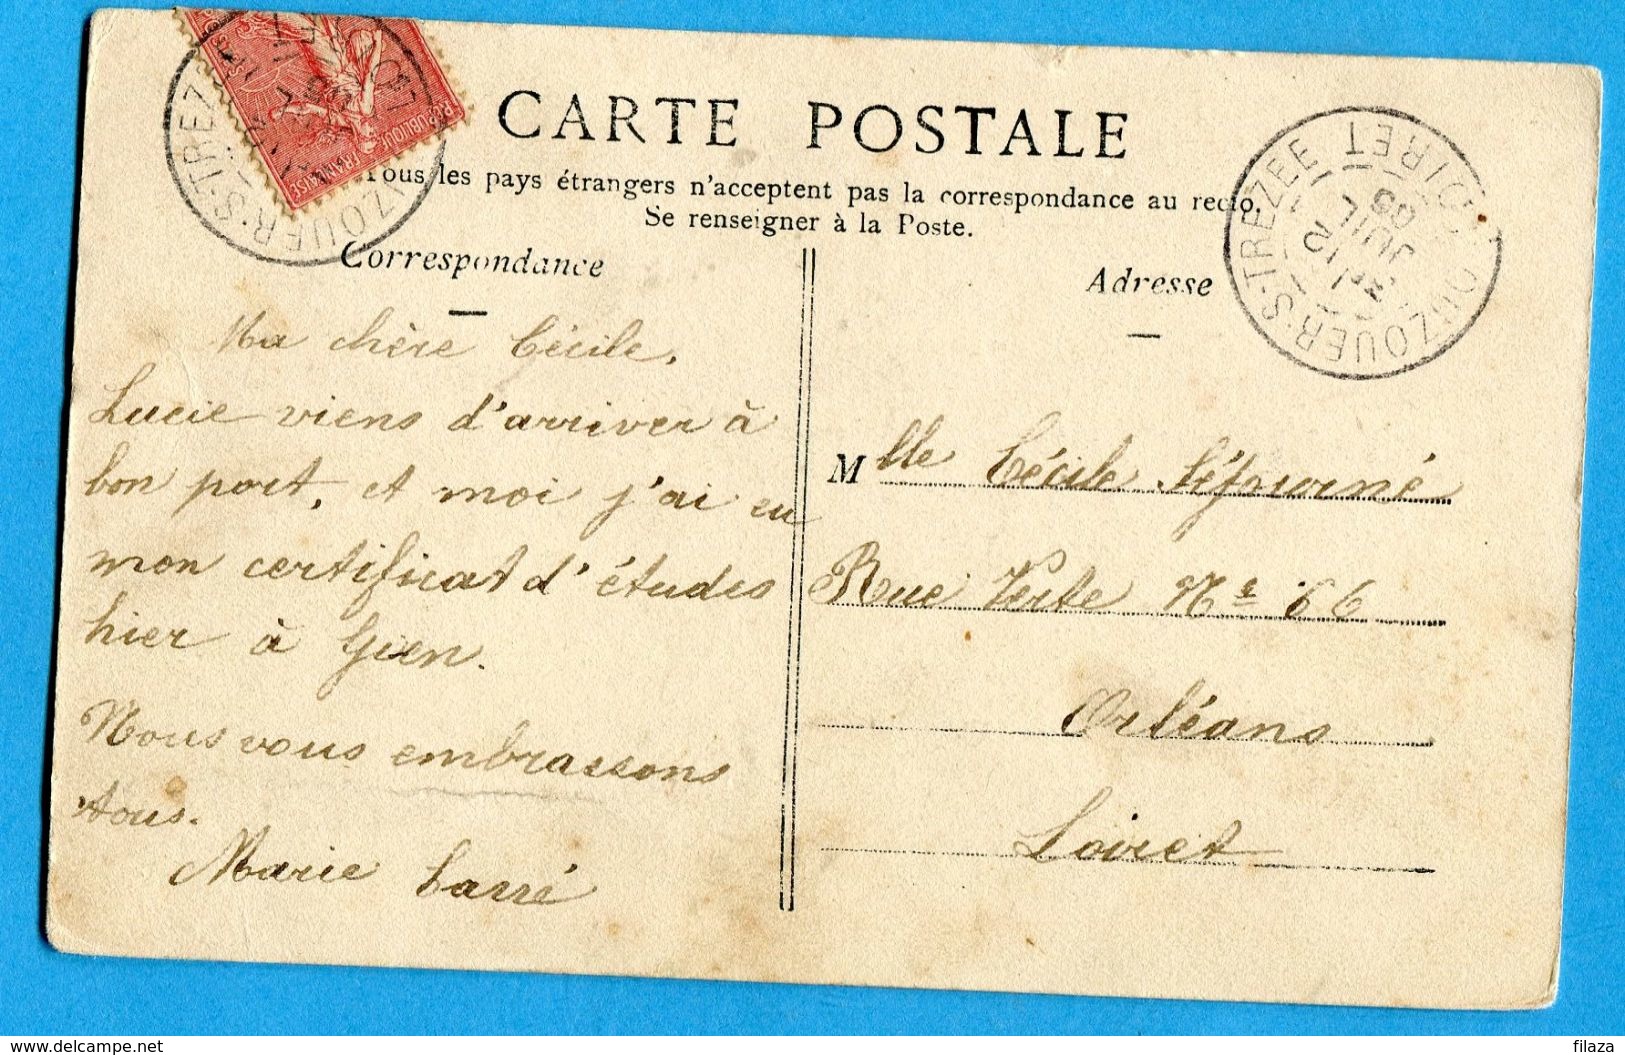 CARTE POSTALE
Tous les pays étrangers n'acceptent pas la correspondance au recto.
Se renseigner à la Poste.
Correspondance
Adresse
RÉPUBLIQUE FRANÇAISE
OUZOUER-S-TREZEE
LOIRET
JUIL
05
Ma chère Cécile,
Lucie viens d'arriver à
bon port, et moi j'ai eu
mon certificat d'études
hier à Gien.
Nous vous embrassons
tous.
Marie Carré
Mlle Cécile Séjourné
Rue Verte
Orléans
Loiret
www.delcampe.net
filaza